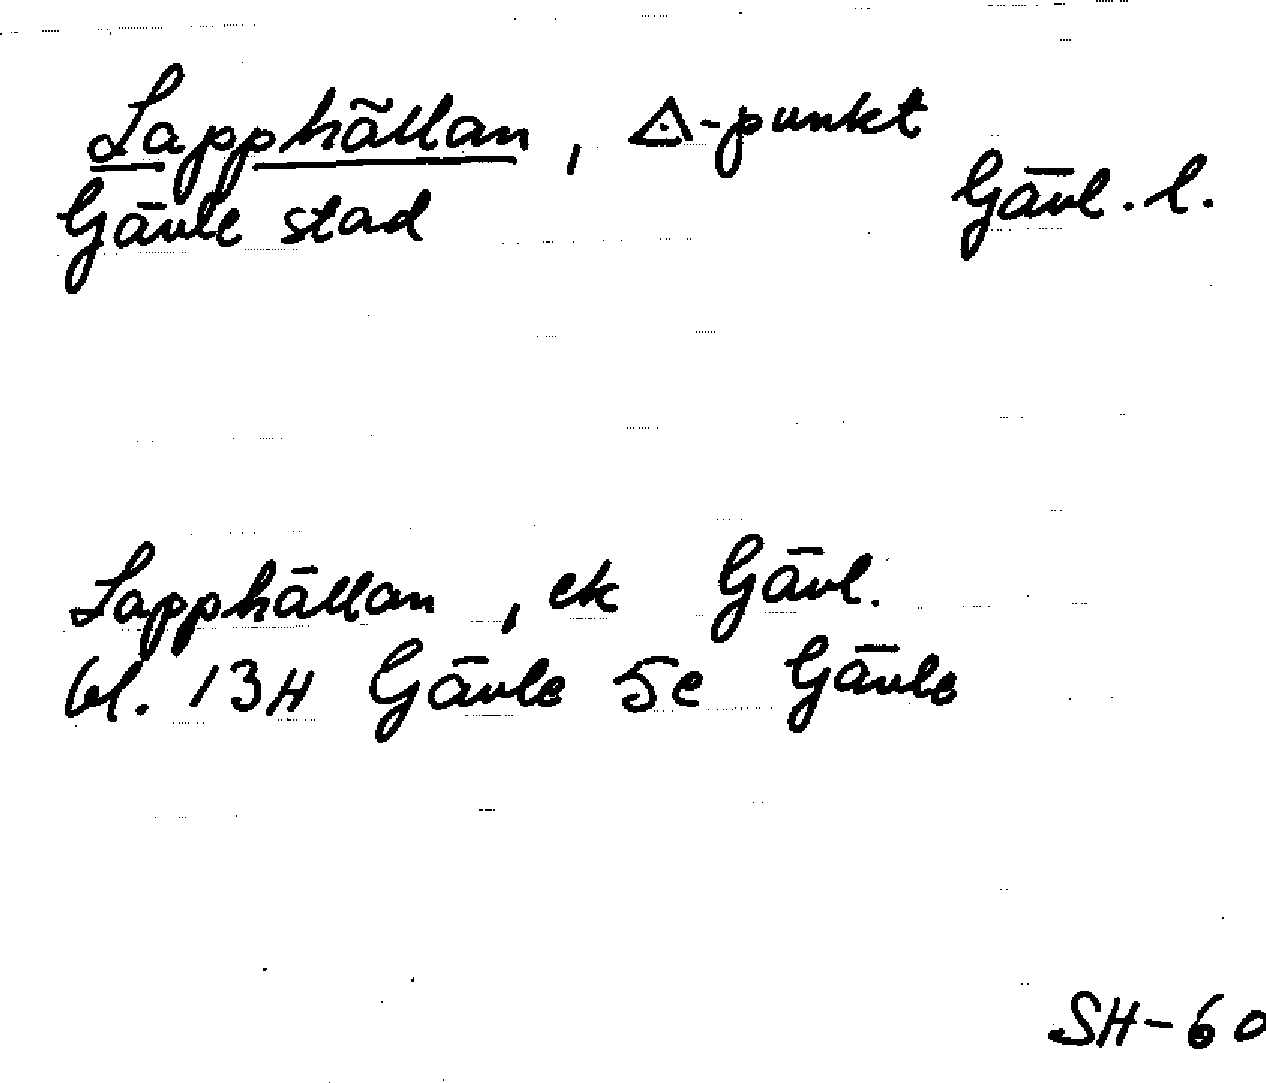 Lapphällan, △-punkt
Gävle stad Gävl. l.
Lapphällan, ek Gävl.
bl. 13H Gävle 5c Gävle
SH-60